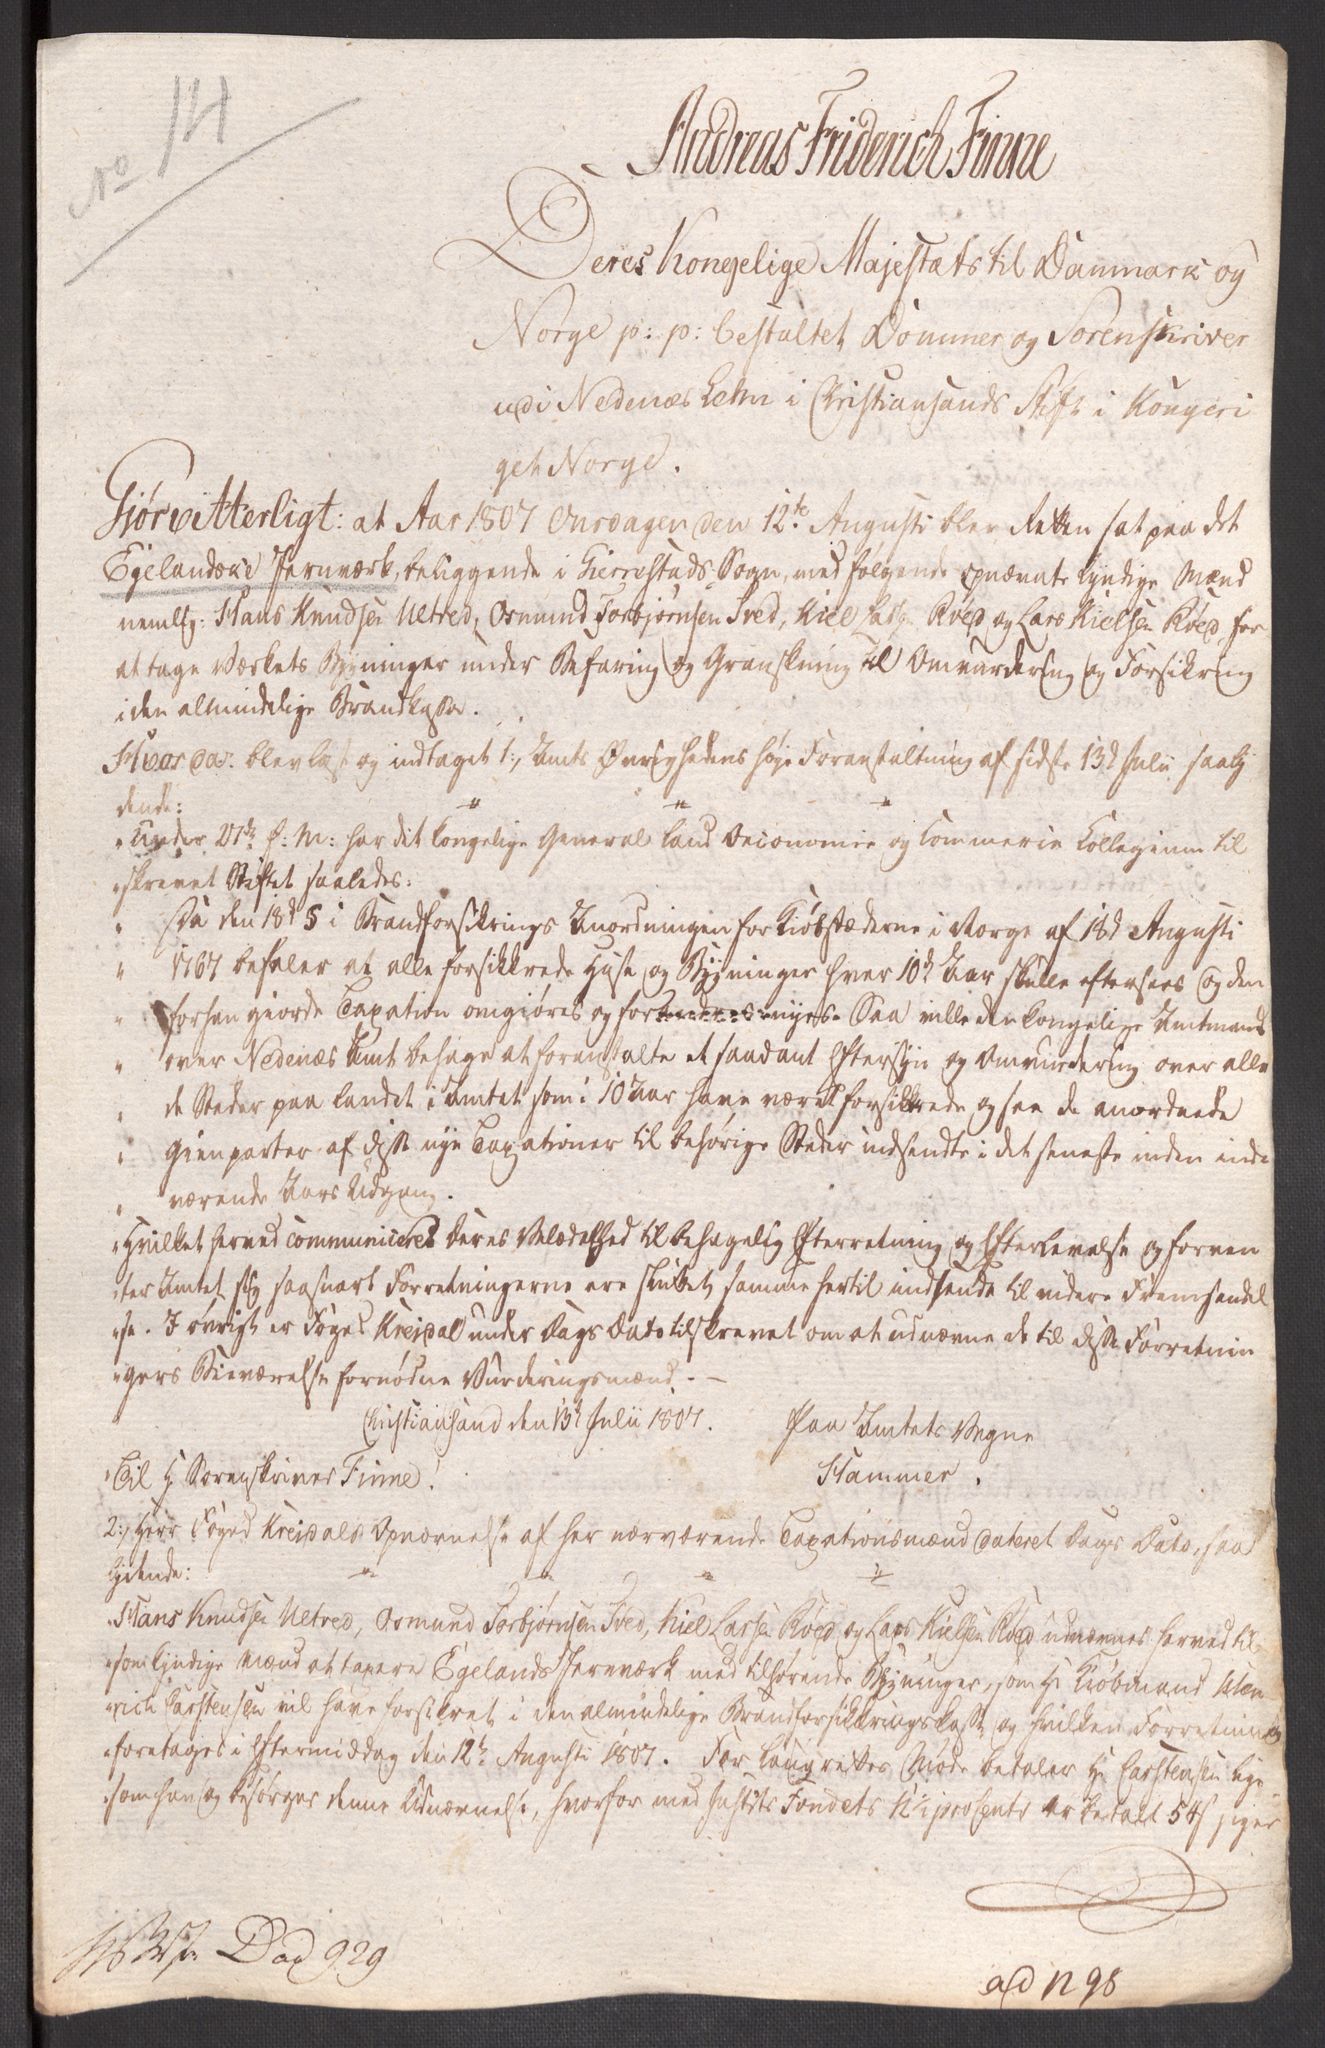 No 14
Andreas Friderich Finne
Deres Kongelige Majestæts til Danmark og
Norge p: p: bestaltet Dommer og Sorenskriver
udi Nedenæs Lehn i Christiansands Stift i Kongeri
get Norge.
Gjør vitterligt: at Aar 1807 Onsdagen den 12te Augusti blev Retten sat paa det
Egelandske Jernværk, beliggende i Gierrestads Sogn, med følgende opnævnte kyndige Mænd
nemlig: Hans Knudsen Ultved, Osmund Torbjørnsen Tved, Kiel Larsen Røed og Lars Kielsen Røed for
at tage Værkets Bygninger under Befaring og Granskning til Omvurdering og Forsikring
i den almindelige Brandkasse.
Hvor da: blev læst og indtaget 1:, Amts Øvrighedens høje Foranstaltning af sidste 13d Julii saaly
dende:
" Under 27de f: M: har det kongelige General Land Oeconomie og Commerce Collegium til
" skrevet Stiftet saaledes:
" Da den 18d § i Brandforsikrings Anordningen for Kiøbstæderne i Norge af 18d Augusti
" 1767 befaler at alle forsikkrede Huse og Bygninger hver 10de Aar skulle eftersees og den
" forhen giorde Taxation omgiøres og fornyes. Saa ville den kongelige Amtmand
" over Nedenæs Amt behage at foranstalte et saadant Eftersyn og Omvurdering over alle
" de Steder paa Landet i Amtet som i 10 Aar have været forsikkrede og see de anordnede
" Gienparter af disse nye Taxationer til behørige Steder indsendte i det seneste inden inde
" værende Aars Udgang.
" Hvilket herved communiceres Deres Velædelhed til behagelig Efterretning og Efterlevelse og forven
" ter Amtet sig saasnart Forretningerne ere sluttet, samme hertil indsendt til videre Fremsendel
" se. I øvrigt er Foged Kreidal under Dags Dato tilskrevet om at udnævne de til disse Forretnin
" gers Bieværelse fornødne Vurderingsmænd. —
Christiansand den 13d Julii 1807. Paa Amtets Vegne
" Til Hr Sorenskriver Finne! Hammer.
2:, Herr Foged Kreidals Opnævnelse af her nærværende Taxationsmænd dateret Dags Dato, saa
lydende:
" Hans Knudsen Ultved, Osmund Torbjørnsen Tved, Kiel Larsen Røed og Lars Kielsen Røed udnævnes herved til
" som kyndige Mænd at taxere Egelands Jernværk med tilhørende Bygninger, som Hr Kiøbmand Hen
" rich Carstensen vil have forsikret i den almindelige Brandforsikkringskasse og hvilken Forretning
" foretages i Eftermiddag den 12te Augusti 1807. For Laugrettes Møde betaler Hr Carstensen lige
" som han og besørger denne Udnævnelse, hvorfor med Justits Fondets prosento er betalt 54 s siger
Dad 929
ad N 98